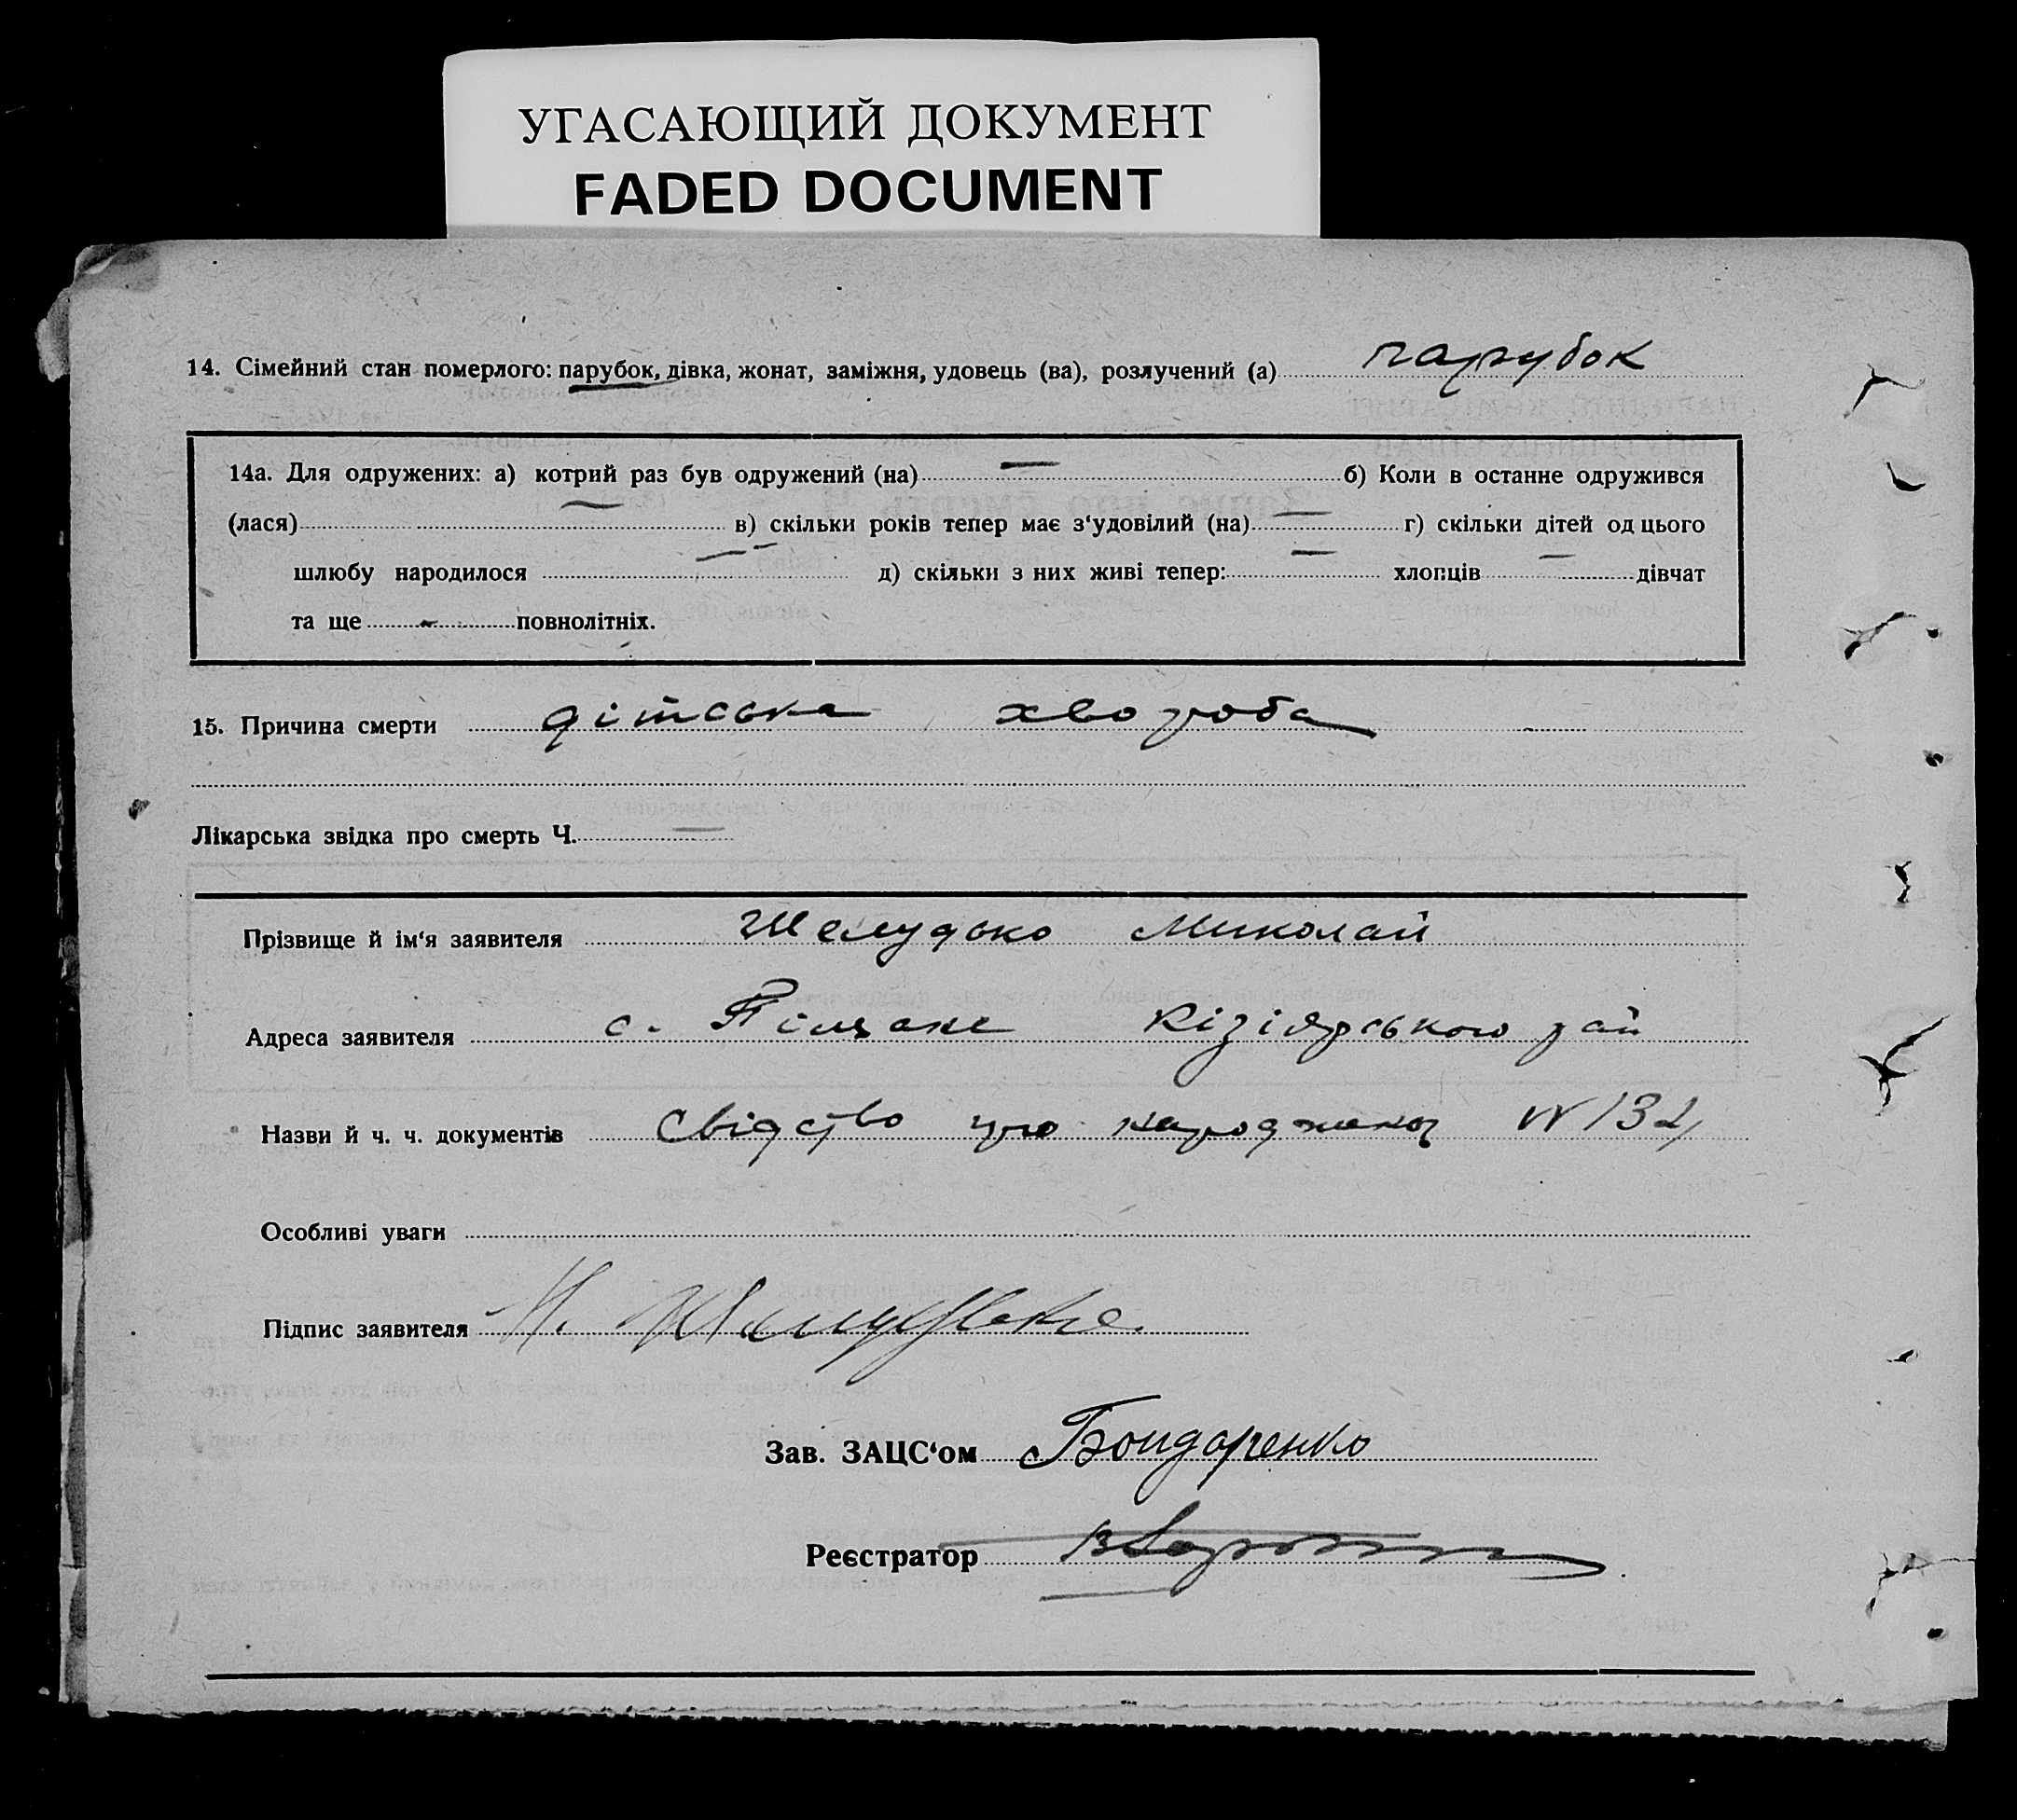 УГАСАЮЩИЙ ДОКУМЕНТ
FADED DOCUMENT
14. Сімейний стан померлого: парубок, дівка, жонат, заміжня, удовець (ва), розлучений (а) парубок
14а. Для одружених: а) котрий раз був одружений (на) — б) Коли в останне одружився
(лася) — в) скільки років тепер має з‘удовілий (на) — г) скільки дітей од цього
шлюбу народилося — д) скільки з них живі тепер: — хлопців — дівчат
та ще - повнолітніх.
15. Причина смерти дітська хвороба
Лікарська звідка про смерть Ч. —
Прізвище й ім‘я заявителя Шелудько Миколай
Адреса заявителя с. Піщане Кізіярського рай
Назви й ч. ч. документів Свідство про народження N 132
Особливі уваги
Підпис заявителя Н. Шелудько
Зав. ЗАЦС‘ом Бондаренко
Реєстратор